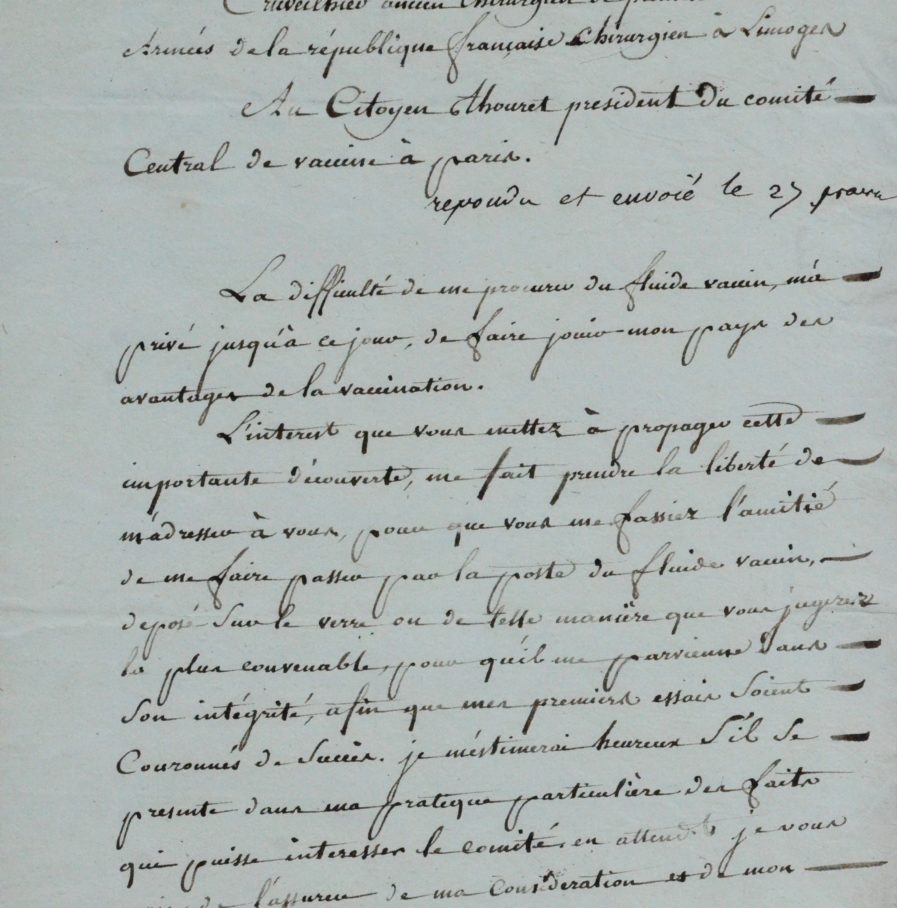 Cruveilhier ancien chirurgien de
Armées de la république française chirurgien à Limoges
Au Citoyen thouret president du comité
Central de vaccine à paris.
repondu et envoié le 27
La difficulté de me procurer du fluide vaccin, m'a
privé jusqu'à ce jour, de faire jouir mon pays des
avantages de la vaccination.
L'interest que vous mettez à propager cette
importante découverte, me fait prendre la liberté de
m'adresser à vous, pour que vous me fassiez l'amitié
de me faire passer par la poste du fluide vaccin,
deposé sur le verre ou de telle manière que vous jugerez
la plus convenable, pour qu'il me parvienne dans
son intégrité, afin que mes premiers essais soient
Couronnés de succès. je m'éstimerai heureux s'il se
presente dans ma pratique particulière des faits
qui puisse interesser le comité, en attendt je vous
de l'assurer de ma Considération et de mon